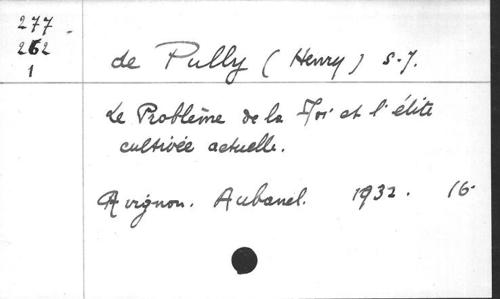 277
262
1
de Pully (Henry) S.J.
Le Problème de la Foi et l'élite
cultivée actuelle.
Avignon. Aubanel. 1932. 16°